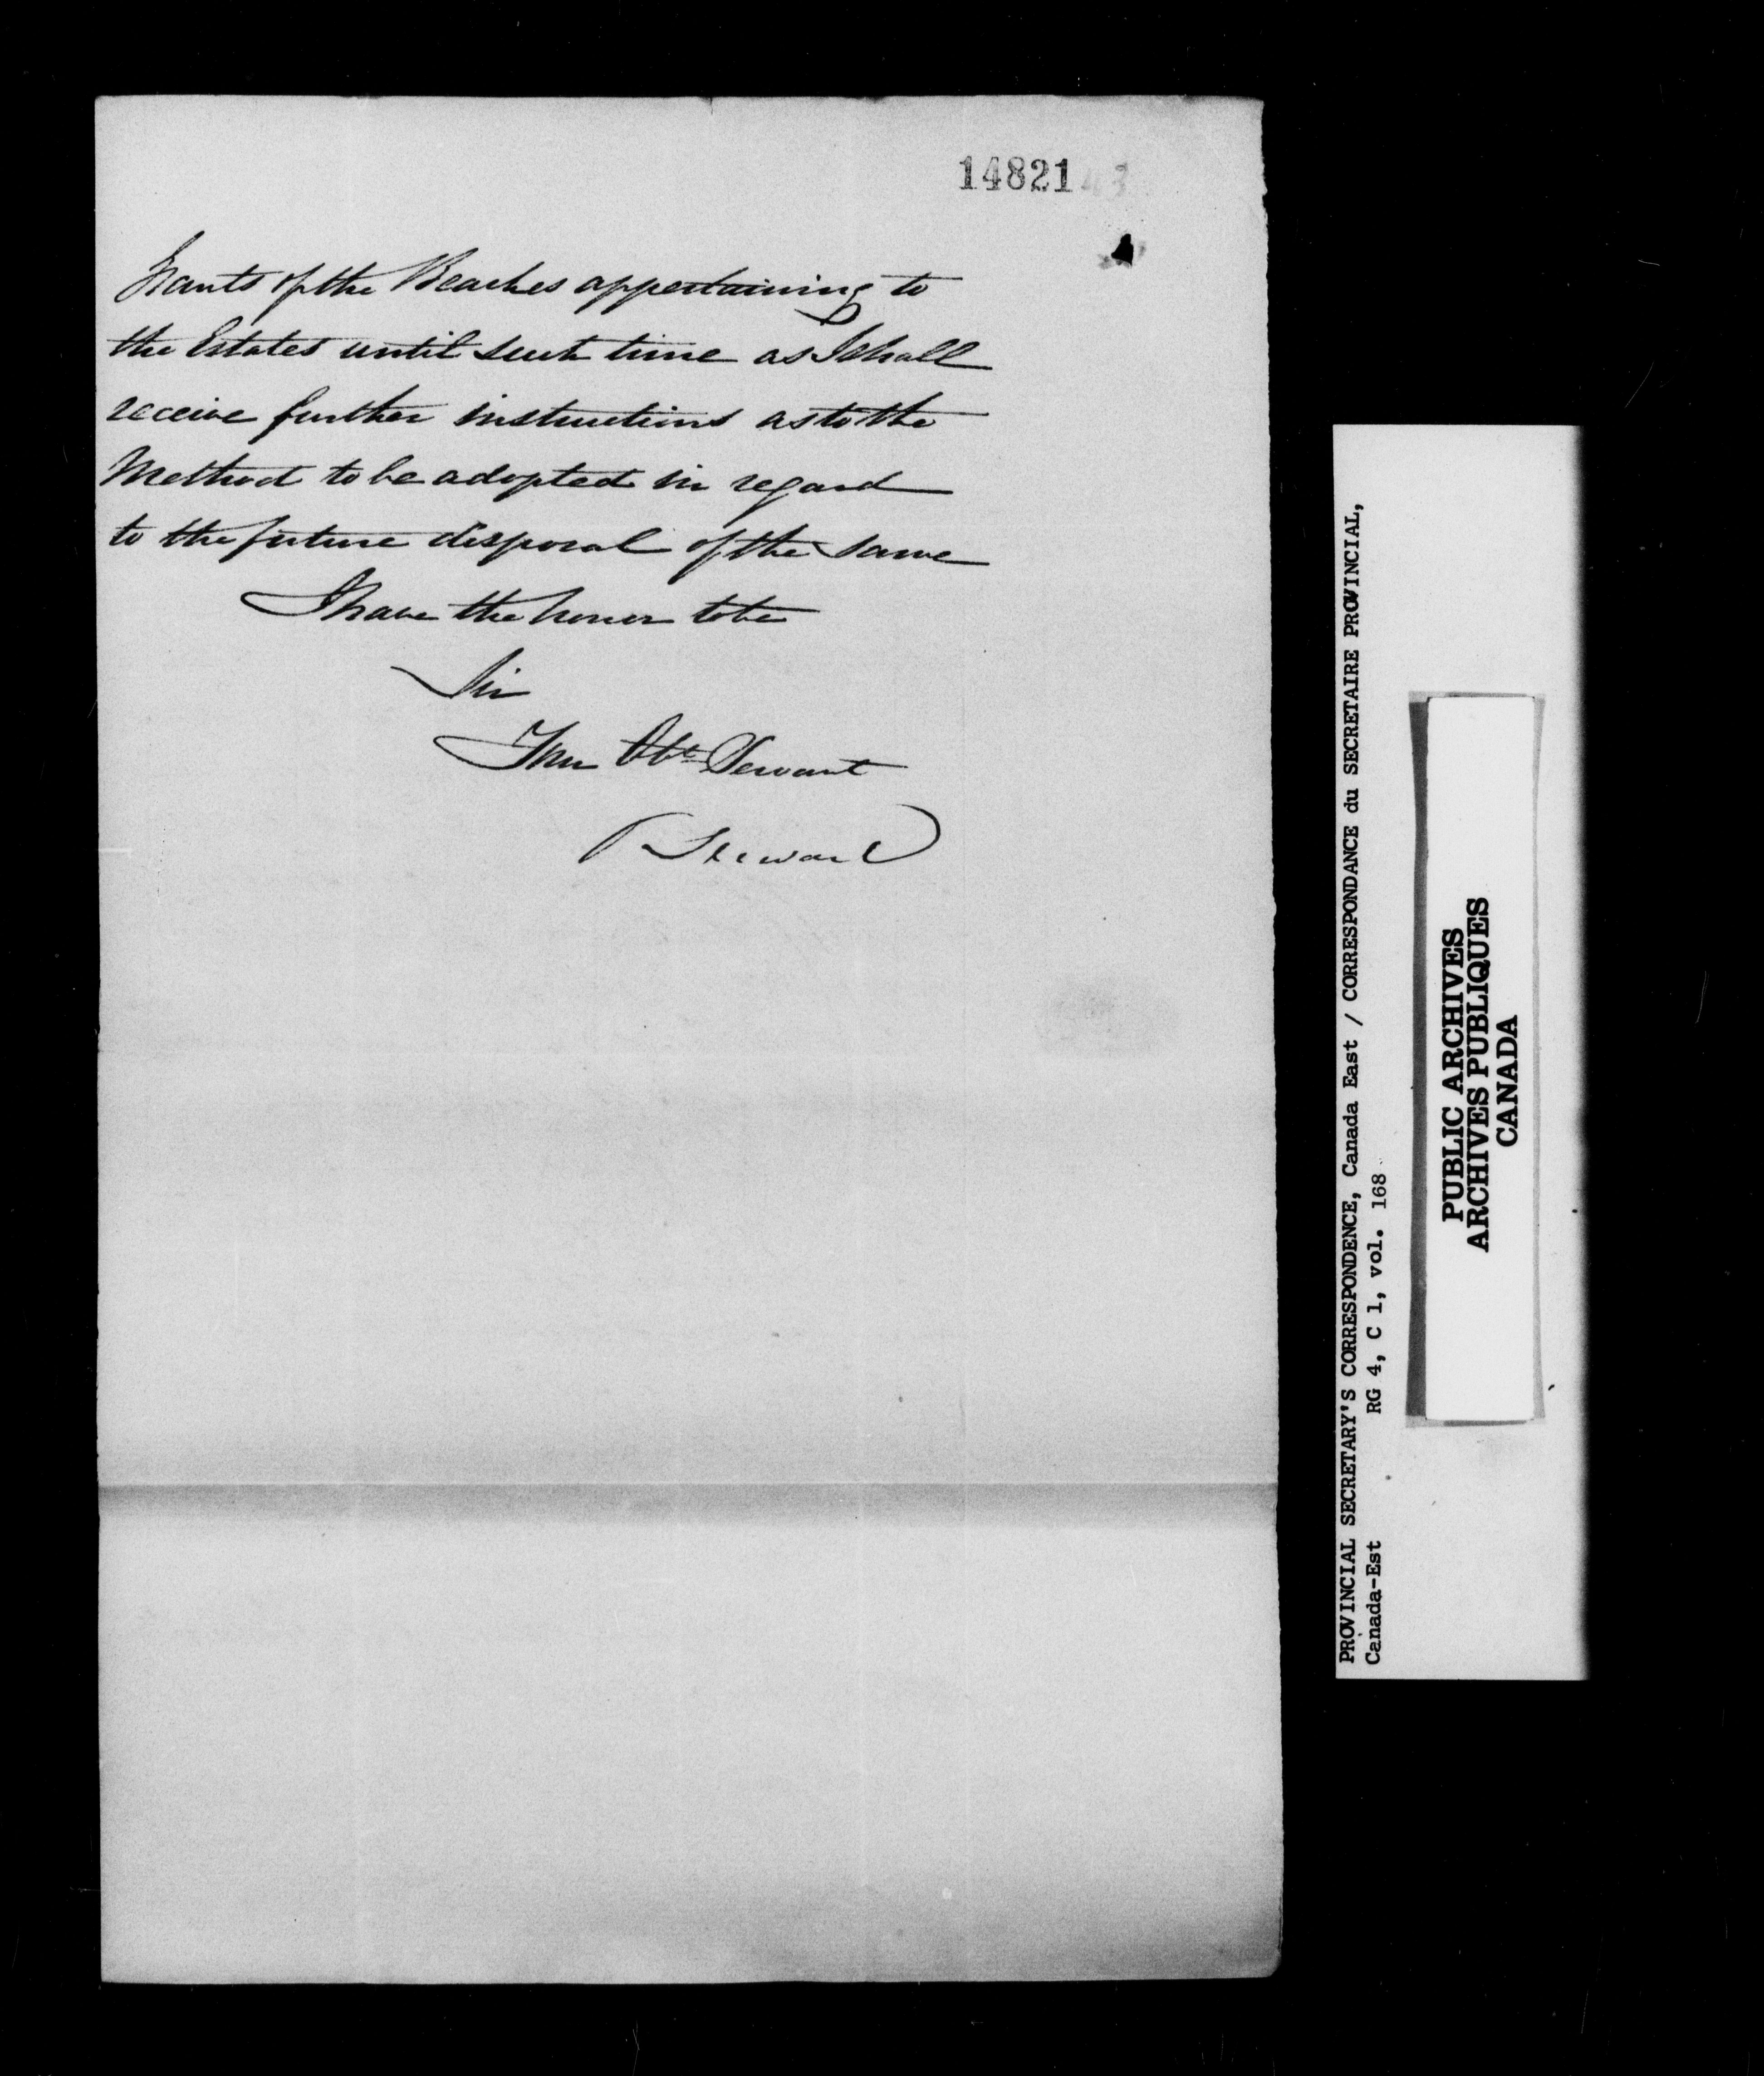 14821
Grants of the Beaches appertaining to
the Estates until such time as I shall
receive further instructions as to the
Method to be adopted in regard
to the future disposal of the same
I have the honor to be
Sir
Your Obt Servant
Steward
PROVINCIAL SECRETARY'S CORRESPONDENCE, Canada East / CORRESPONDANCE du SECRETAIRE PROVINCIAL,
Canada-Est RG 4, C 1, vol. 168
PUBLIC ARCHIVES
ARCHIVES PUBLIQUES
CANADA